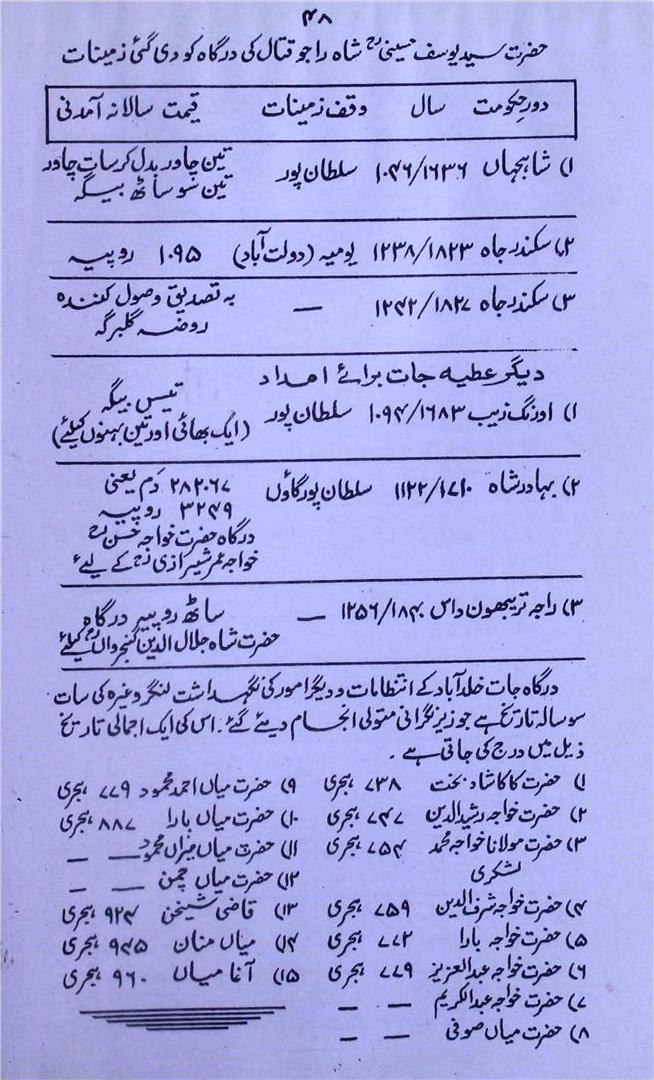 ۴۸
حضرت سید یوسف حسینیؒ شاہ راجو قتال کی درگاہ کو دی گئی زمینات
دور حکومت سال وقف زمینات قیمت سالانہ آمدنی
۱) شاہجہاں ۱۰۴۶/۱۶۳۶ سلطان پور تین چاور بدل کر سات چاور
تین سو ساٹھ بیگہ
۲) سکندر جاہ ۱۲۳۸/۱۸۲۳ یومیہ (دولت آباد) ۱۰۹۵ روپیہ
۳) سکندر جاہ ۱۲۴۲/۱۸۲۷ — بہ تصدیق وصول کنندہ
روضہ گلبرگہ
دیگر عطیہ جات برائے امداد
۱) اورنگ زیب ۱۰۹۴/۱۶۸۳ سلطان پور تیس بیگہ
(ایک بھائی اور تین بہنوں کیلئے)
۲) بہادر شاہ ۱۱۲۲/۱۷۱۰ سلطان پور گاؤں ۲۸۲۰۶۷ دَم یعنی
۳۲۴۹ روپیہ
درگاہ حضرت خواجہ حسنؒ
خواجہ عمر شیرازیؒ کے لیئے
۳) راجہ تریبھون داس ۱۲۵۶/۱۸۴۰ — ساٹھ روپیہ درگاہ
حضرت شاہ جلال الدین گنجرواںؒ کیلئے
درگاہ جات خلدآباد کے انتظامات و دیگر امور کی نگہداشت لنگر وغیرہ کی سات
سو سالہ تاریخ ہے جو زیر نگرانی متولی انجام دیئے گئے۔ اس کی ایک اجمالی تاریخ
ذیل میں درج کی جاتی ہے۔
۱) حضرت کاکا شاد بخت ۷۳۸ ہجری
۲) حضرت خواجہ رشید الدین ۷۴۷ ہجری
۳) حضرت مولانا خواجہ محمد ۷۵۴ ہجری
لشکری
۴) حضرت خواجہ شرف الدین ۷۵۹ ہجری
۵) حضرت خواجہ بارا ۷۷۲ ہجری
۶) حضرت خواجہ عبدالعزیز ۷۷۹ ہجری
۷) حضرت خواجہ عبدالکریم — —
۸) حضرت میاں صوفی — —
۹) حضرت میاں احمد محمود ۷۷۹ ہجری
۱۰) حضرت میاں بارا ۸۸۷ ہجری
۱۱) حضرت میاں میراں محمود — —
۱۲) حضرت میاں چمن — —
۱۳) قاضی شیخن ۹۲۴ ہجری
۱۴) میاں منان ۹۴۵ ہجری
۱۵) آغا میاں ۹۶۰ ہجری